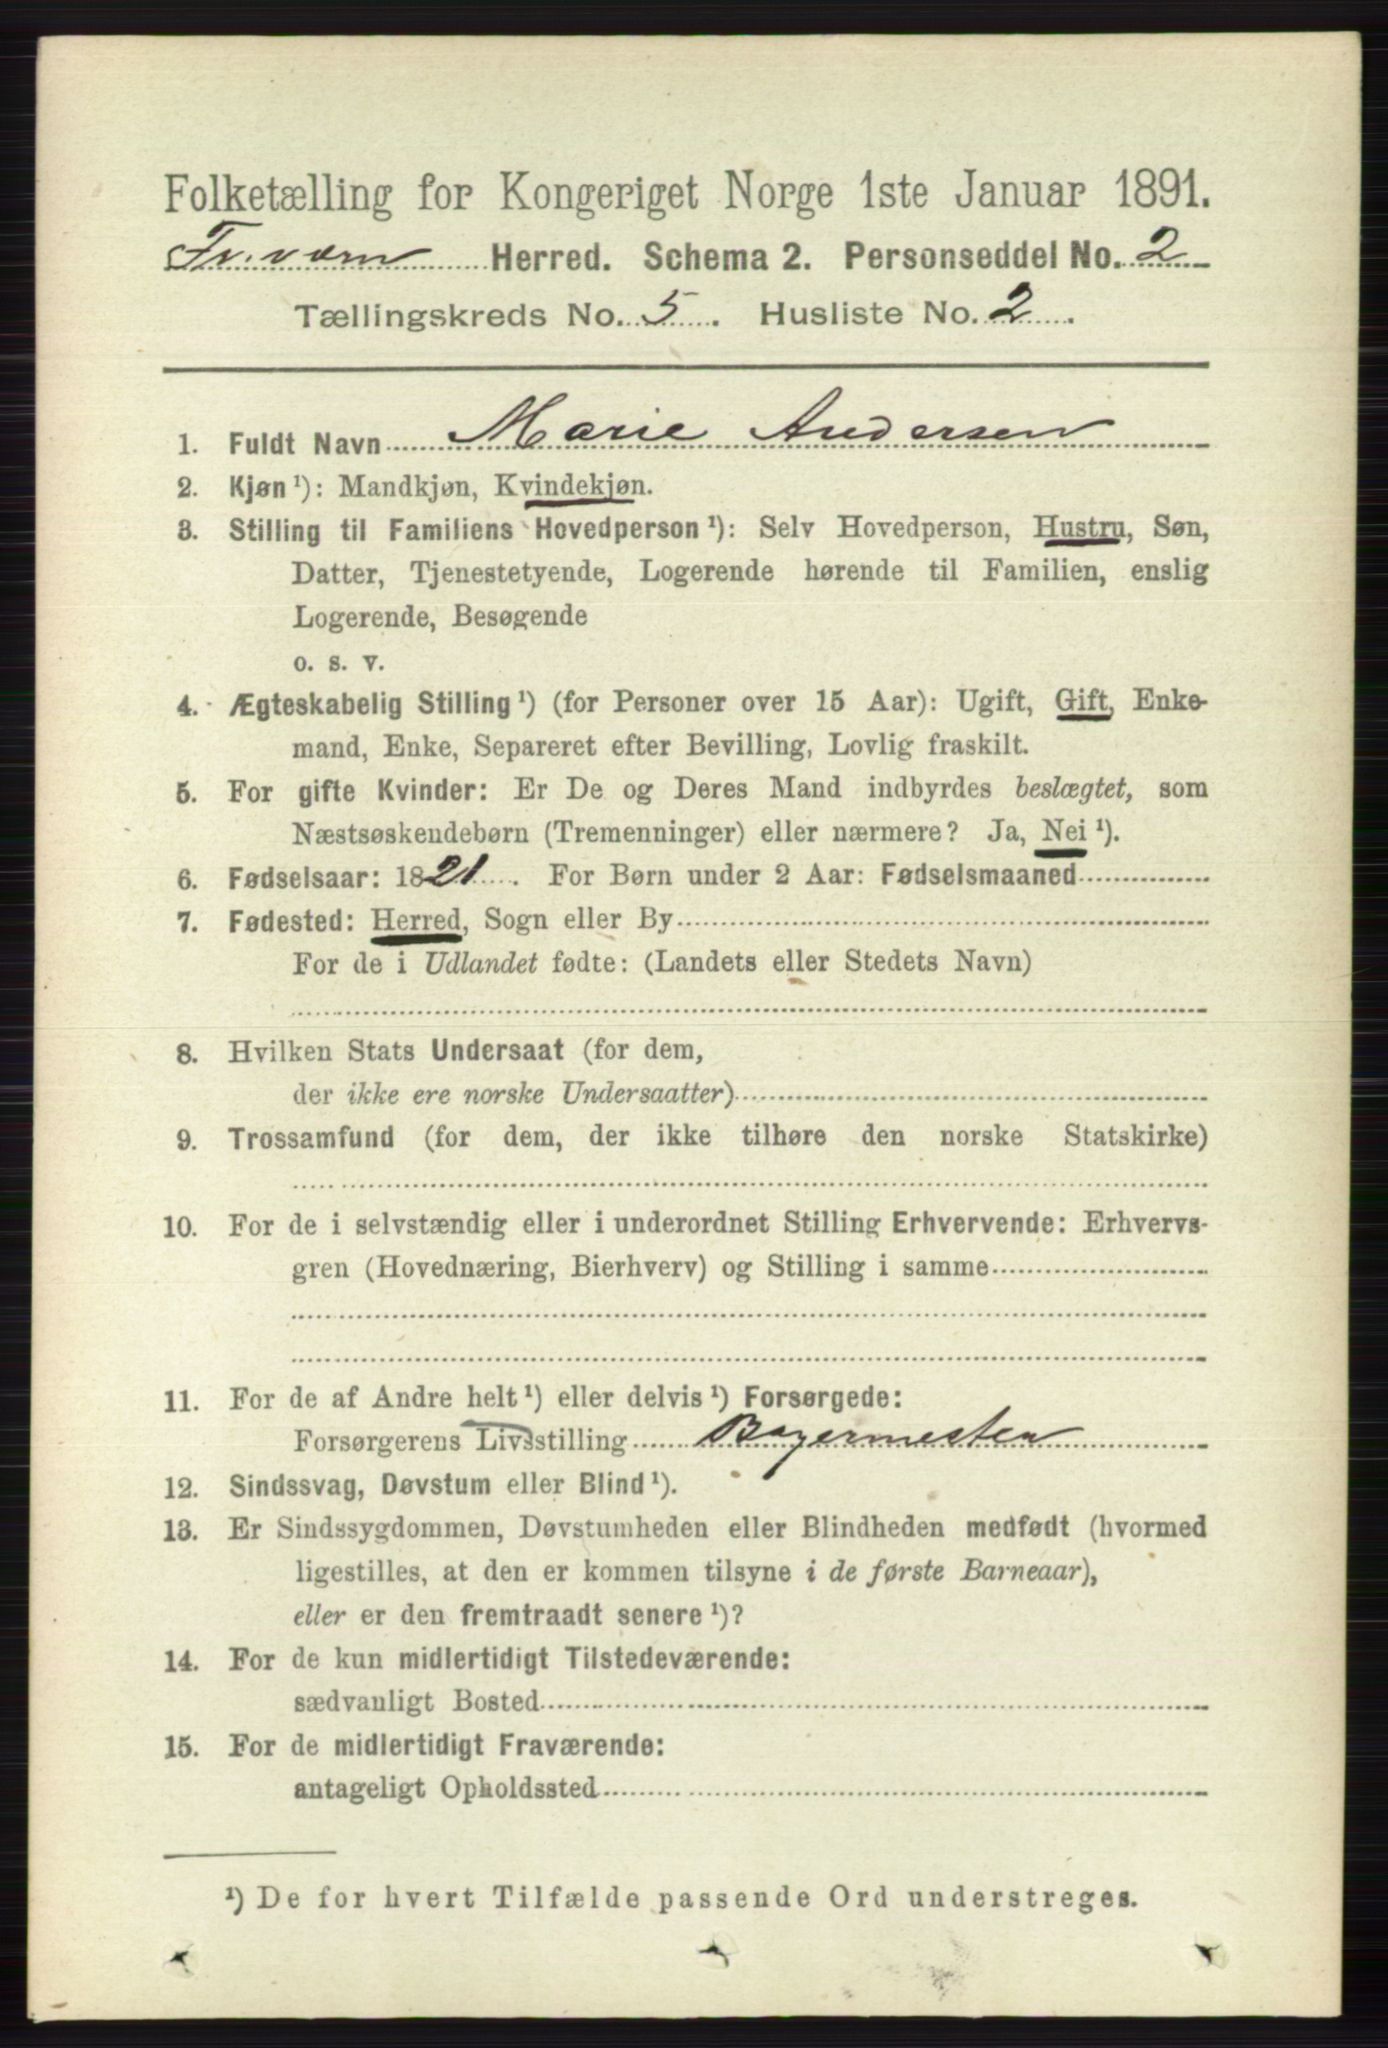 Folketælling for Kongeriget Norge 1ste Januar 1891.
Fr.værn Herred. Schema 2. Personseddel No. 2
Tællingskreds No. 5. Husliste No. 2.
1. Fuldt Navn Marie Andersen
2. Kjøn ¹): Mandkjøn, Kvindekjøn.
3. Stilling til Familiens Hovedperson ¹): Selv Hovedperson, Hustru, Søn,
Datter, Tjenestetyende, Logerende hørende til Familien, enslig
Logerende, Besøgende
o. s. v.
4. Ægteskabelig Stilling ¹) (for Personer over 15 Aar): Ugift, Gift, Enke-
mand, Enke, Separeret efter Bevilling, Lovlig fraskilt.
5. For gifte Kvinder: Er De og Deres Mand indbyrdes beslægtet, som
Næstsøskendebørn (Tremenninger) eller nærmere? Ja, Nei ¹).
6. Fødselsaar: 1821. For Børn under 2 Aar: Fødselsmaaned
7. Fødested: Herred, Sogn eller By
For de i Udlandet fødte: (Landets eller Stedets Navn)
8. Hvilken Stats Undersaat (for dem,
der ikke ere norske Undersaatter)
9. Trossamfund (for dem, der ikke tilhøre den norske Statskirke)
10. For de i selvstændig eller i underordnet Stilling Erhvervende: Erhvervs-
gren (Hovednæring, Bierhverv) og Stilling i samme
11. For de af Andre helt ¹) eller delvis ¹) Forsørgede:
Forsørgerens Livsstilling Bagermester
12. Sindssvag, Døvstum eller Blind ¹).
13. Er Sindssygdommen, Døvstumheden eller Blindheden medfødt (hvormed
ligestilles, at den er kommen tilsyne i de første Barneaar),
eller er den fremtraadt senere ¹)?
14. For de kun midlertidigt Tilstedeværende:
sædvanligt Bosted
15. For de midlertidigt Fraværende:
antageligt Opholdssted
¹) De for hvert Tilfælde passende Ord understreges.